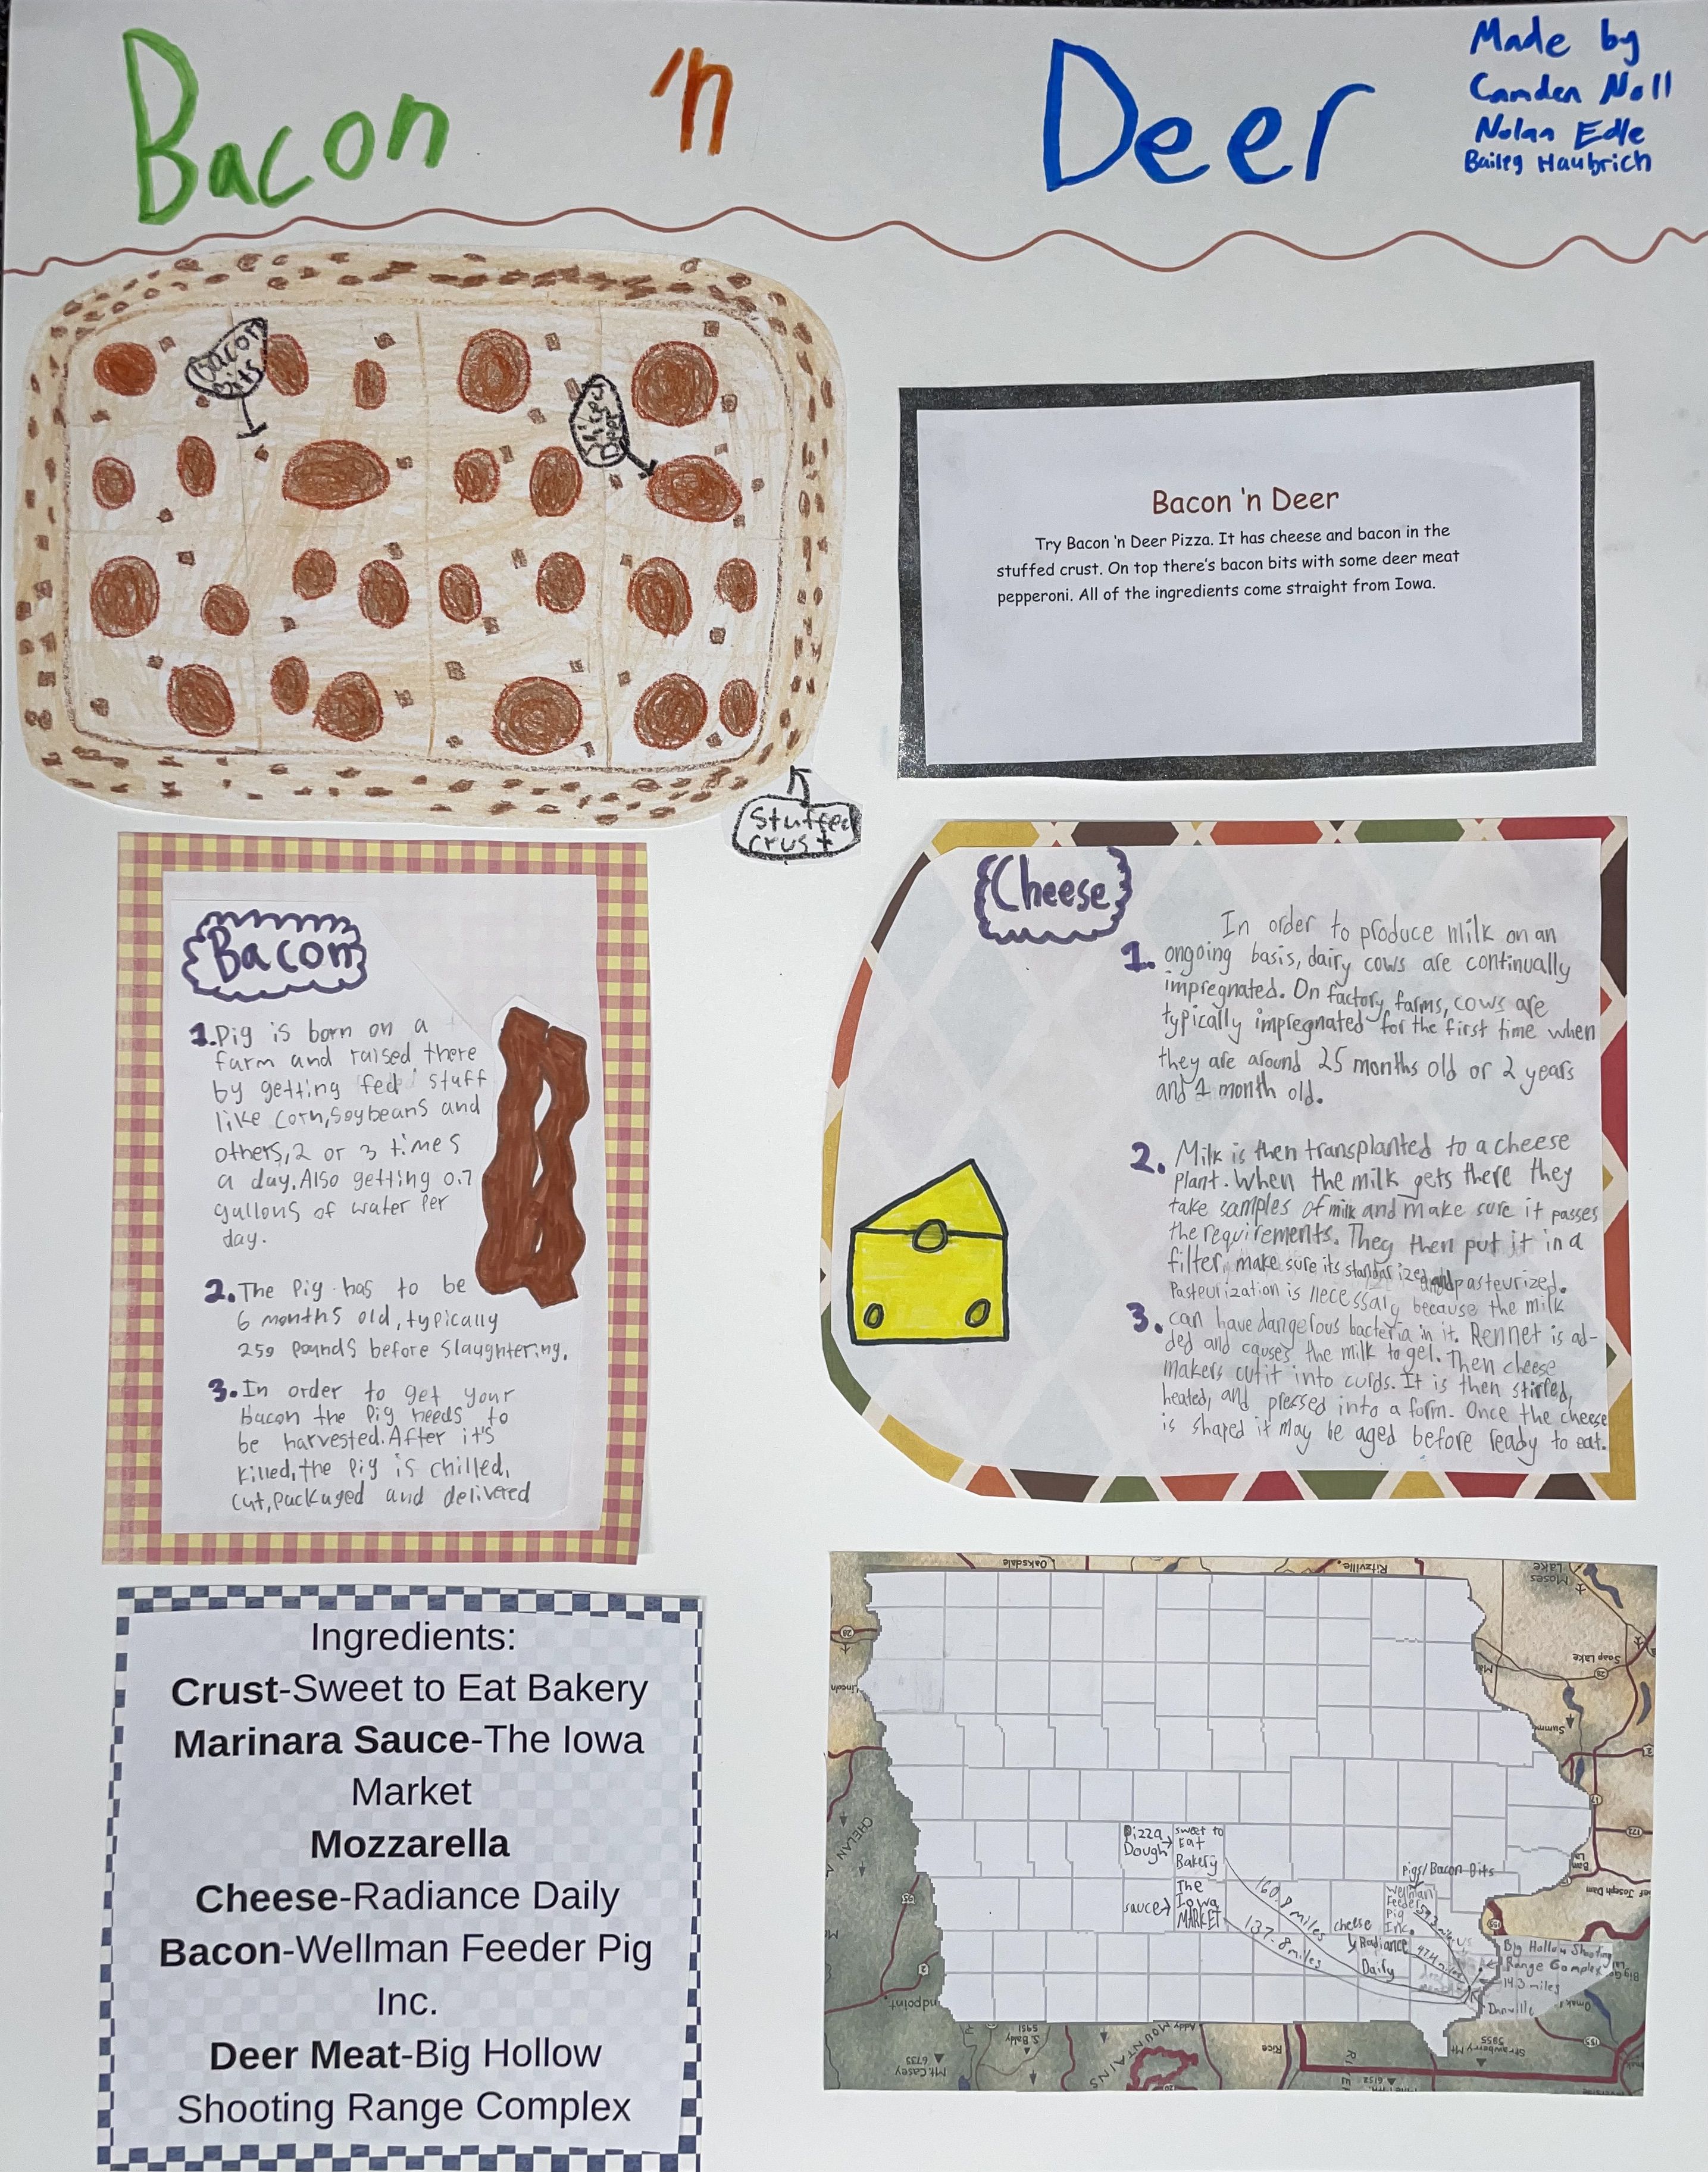 Bacon 'n Deer
Made by
Camden Noll
Nolan Edle
Bailey Haubrich
Bacon
bits
Slices
Deer
Stuffed
crust
Bacon 'n Deer
Try Bacon 'n Deer Pizza. It has cheese and bacon in the
stuffed crust. On top there's bacon bits with some deer meat
pepperoni. All of the ingredients come straight from Iowa.
Bacon
1. Pig is born on a
farm and raised there
by getting fed stuff
like corn, soybeans and
others, 2 or 3 times
a day. Also getting 0.7
gallons of water per
day.
2. The Pig has to be
6 months old, typically
250 pounds before slaughtering.
3. In order to get your
bacon the pig needs to
be harvested. After it's
killed, the pig is chilled,
cut, packaged and delivered
Cheese
1. In order to produce milk on an
ongoing basis, dairy cows are continually
impregnated. On factory farms, cows are
typically impregnated for the first time when
they are around 25 months old or 2 years
and 1 month old.
2. Milk is then transplanted to a cheese
plant. When the milk gets there they
take samples of milk and make sure it passes
the requirements. They then put it in a
filter, make sure its standarized and pasteurized.
Pasteurization is necessary because the milk
3. can have dangerous bacteria in it. Rennet is ad-
ded and causes the milk to gel. Then cheese
makers cut it into curds. It is then stirred,
heated, and pressed into a form. Once the cheese
is shaped it may be aged before ready to eat.
Ingredients:
Crust-Sweet to Eat Bakery
Marinara Sauce-The Iowa
Market
Mozzarella
Cheese-Radiance Daily
Bacon-Wellman Feeder Pig
Inc.
Deer Meat-Big Hollow
Shooting Range Complex
Oaksdale
Ritzville
Moses
Lake
Soap Lake
Lincoln
CHELAN
Pizza
Dough
Sweet to
Eat
Bakery
sauce
The
Iowa
MARKET
160.8 miles
137.8 miles
Pigs/Bacon Bits
Wellman
Feeder
Pig
Inc.
cheese
Radiance
Daily
Big Hollow Shooting
Range Complex
14.3 miles
Danville
Joseph Dam
Omak
Strawberry Mt
5855
Rice
Addy
MOUNTAINS
S. Baldy
5951
Mt. Casey
6735
6152